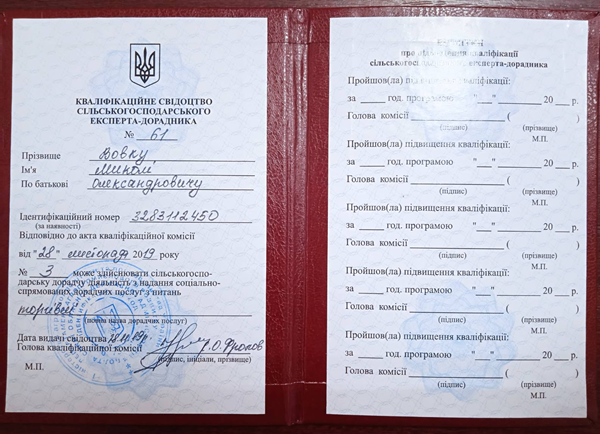 КВАЛІФІКАЦІЙНЕ СВІДОЦТВО
СІЛЬСЬКОГОСПОДАРСЬКОГО
ЕКСПЕРТА-ДОРАДНИКА
№ 61
Прізвище Вовку
Ім'я
По батькові Олександровичу
Ідентифікаційний номер 3283112450
(за наявності)
Відповідно до акта кваліфікаційної комісії
від "28" листопада 2019 року
№ 3 може здійснювати сільськогоспо-
дарську дорадчу діяльність з надання соціально-
спрямованих дорадчих послуг з питань
(повна назва дорадчих послуг)
Дата видачі свідоцтва 28.11.19р.
Голова кваліфікаційної комісії О. Фролов
(підпис, ініціали, прізвище)
М.П.
про підвищення кваліфікації
експерта-дорадника
Пройшов(ла) підвищення кваліфікації:
за ____ год. програмою "___" ________ 20 ___ р.
Голова комісії ____________ ( )
(підпис) (прізвище)
М.П.
Пройшов(ла) підвищення кваліфікації:
за ____ год. програмою "___" ________ 20 ___ р.
Голова комісії ____________ ( )
(підпис) (прізвище)
М.П.
Пройшов(ла) підвищення кваліфікації:
за ____ год. програмою "___" ________ 20 ___ р.
Голова комісії ____________ ( )
(підпис) (прізвище)
М.П.
Пройшов(ла) підвищення кваліфікації:
за ____ год. програмою "___" ________ 20 ___ р.
Голова комісії ____________ ( )
(підпис) (прізвище)
М.П.
Пройшов(ла) підвищення кваліфікації:
за ____ год. програмою "___" ________ 20 ___ р.
Голова комісії ____________ ( )
(підпис) (прізвище)
М.П.